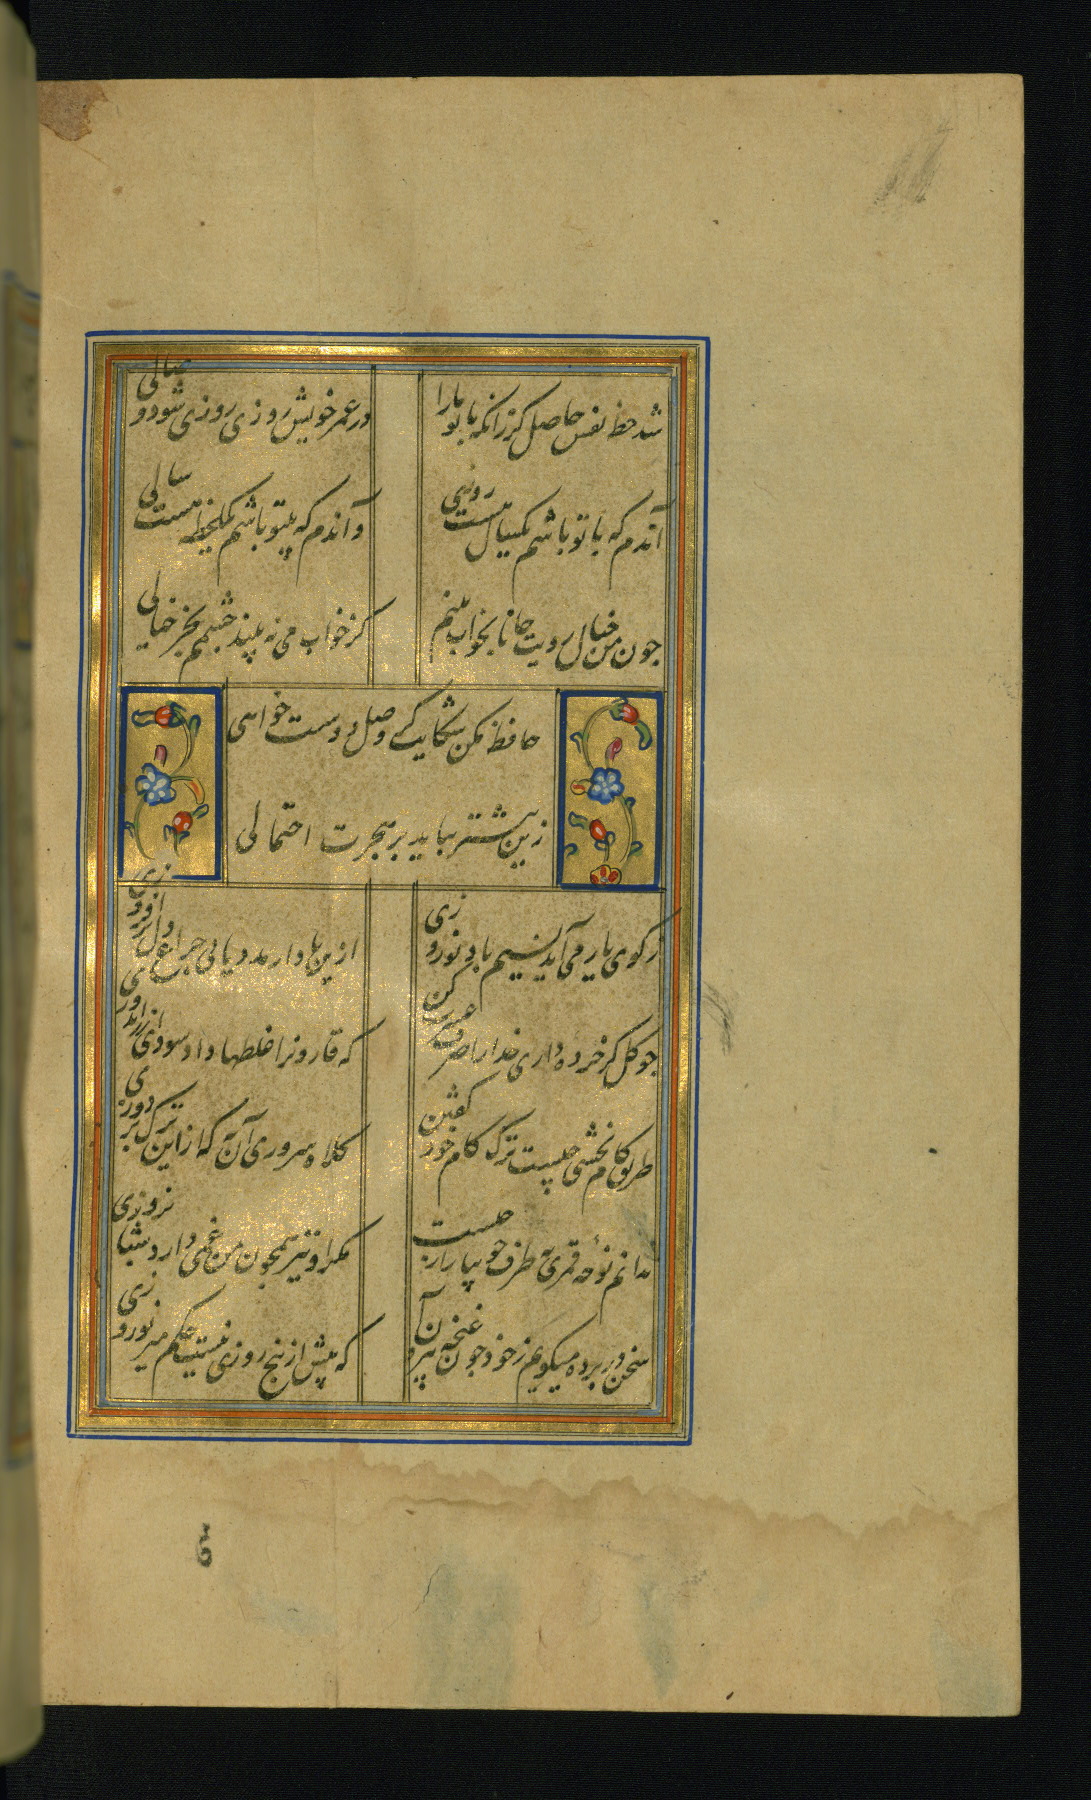 شد حظ نفس حاصل کر زانکه با تو ما را
در عمر خویش روزی روزی شود وصالی
آندم که با تو باشم یکسال هست روزی
و آندم که بیتو باشم یکلحظه هست سالی
جون من خیال رویت جانا بخواب بینم
کز خواب می نه بیند جشمم بجز خیالی
حافظ مکن شکایت کر وصل دوست خواهی
زین بیشتر بباید بر هجرت احتمالی
ز کوی یار می آید نسیم باد نوروزی
ازین باد ار مدد یابی جراغ دل برافروزی
جو کل کر خرده داری خدا را صرف عشرت کن
که قارونرا غلطها داد سودای زر اندوزی
طریق کام بخشی جیست ترک کام خود کفتن
کلاه سروری آنست که از این ترک بردوزی
ندانم نوحه قمری طرف جویباران جیست
مکر او نیز همجون من غمی دارد شبانروزی
سخن در برده میکویم ز خود جون غنجه بیرون آ
که بیش از بنج روزی نیست حکم میر نوروزی